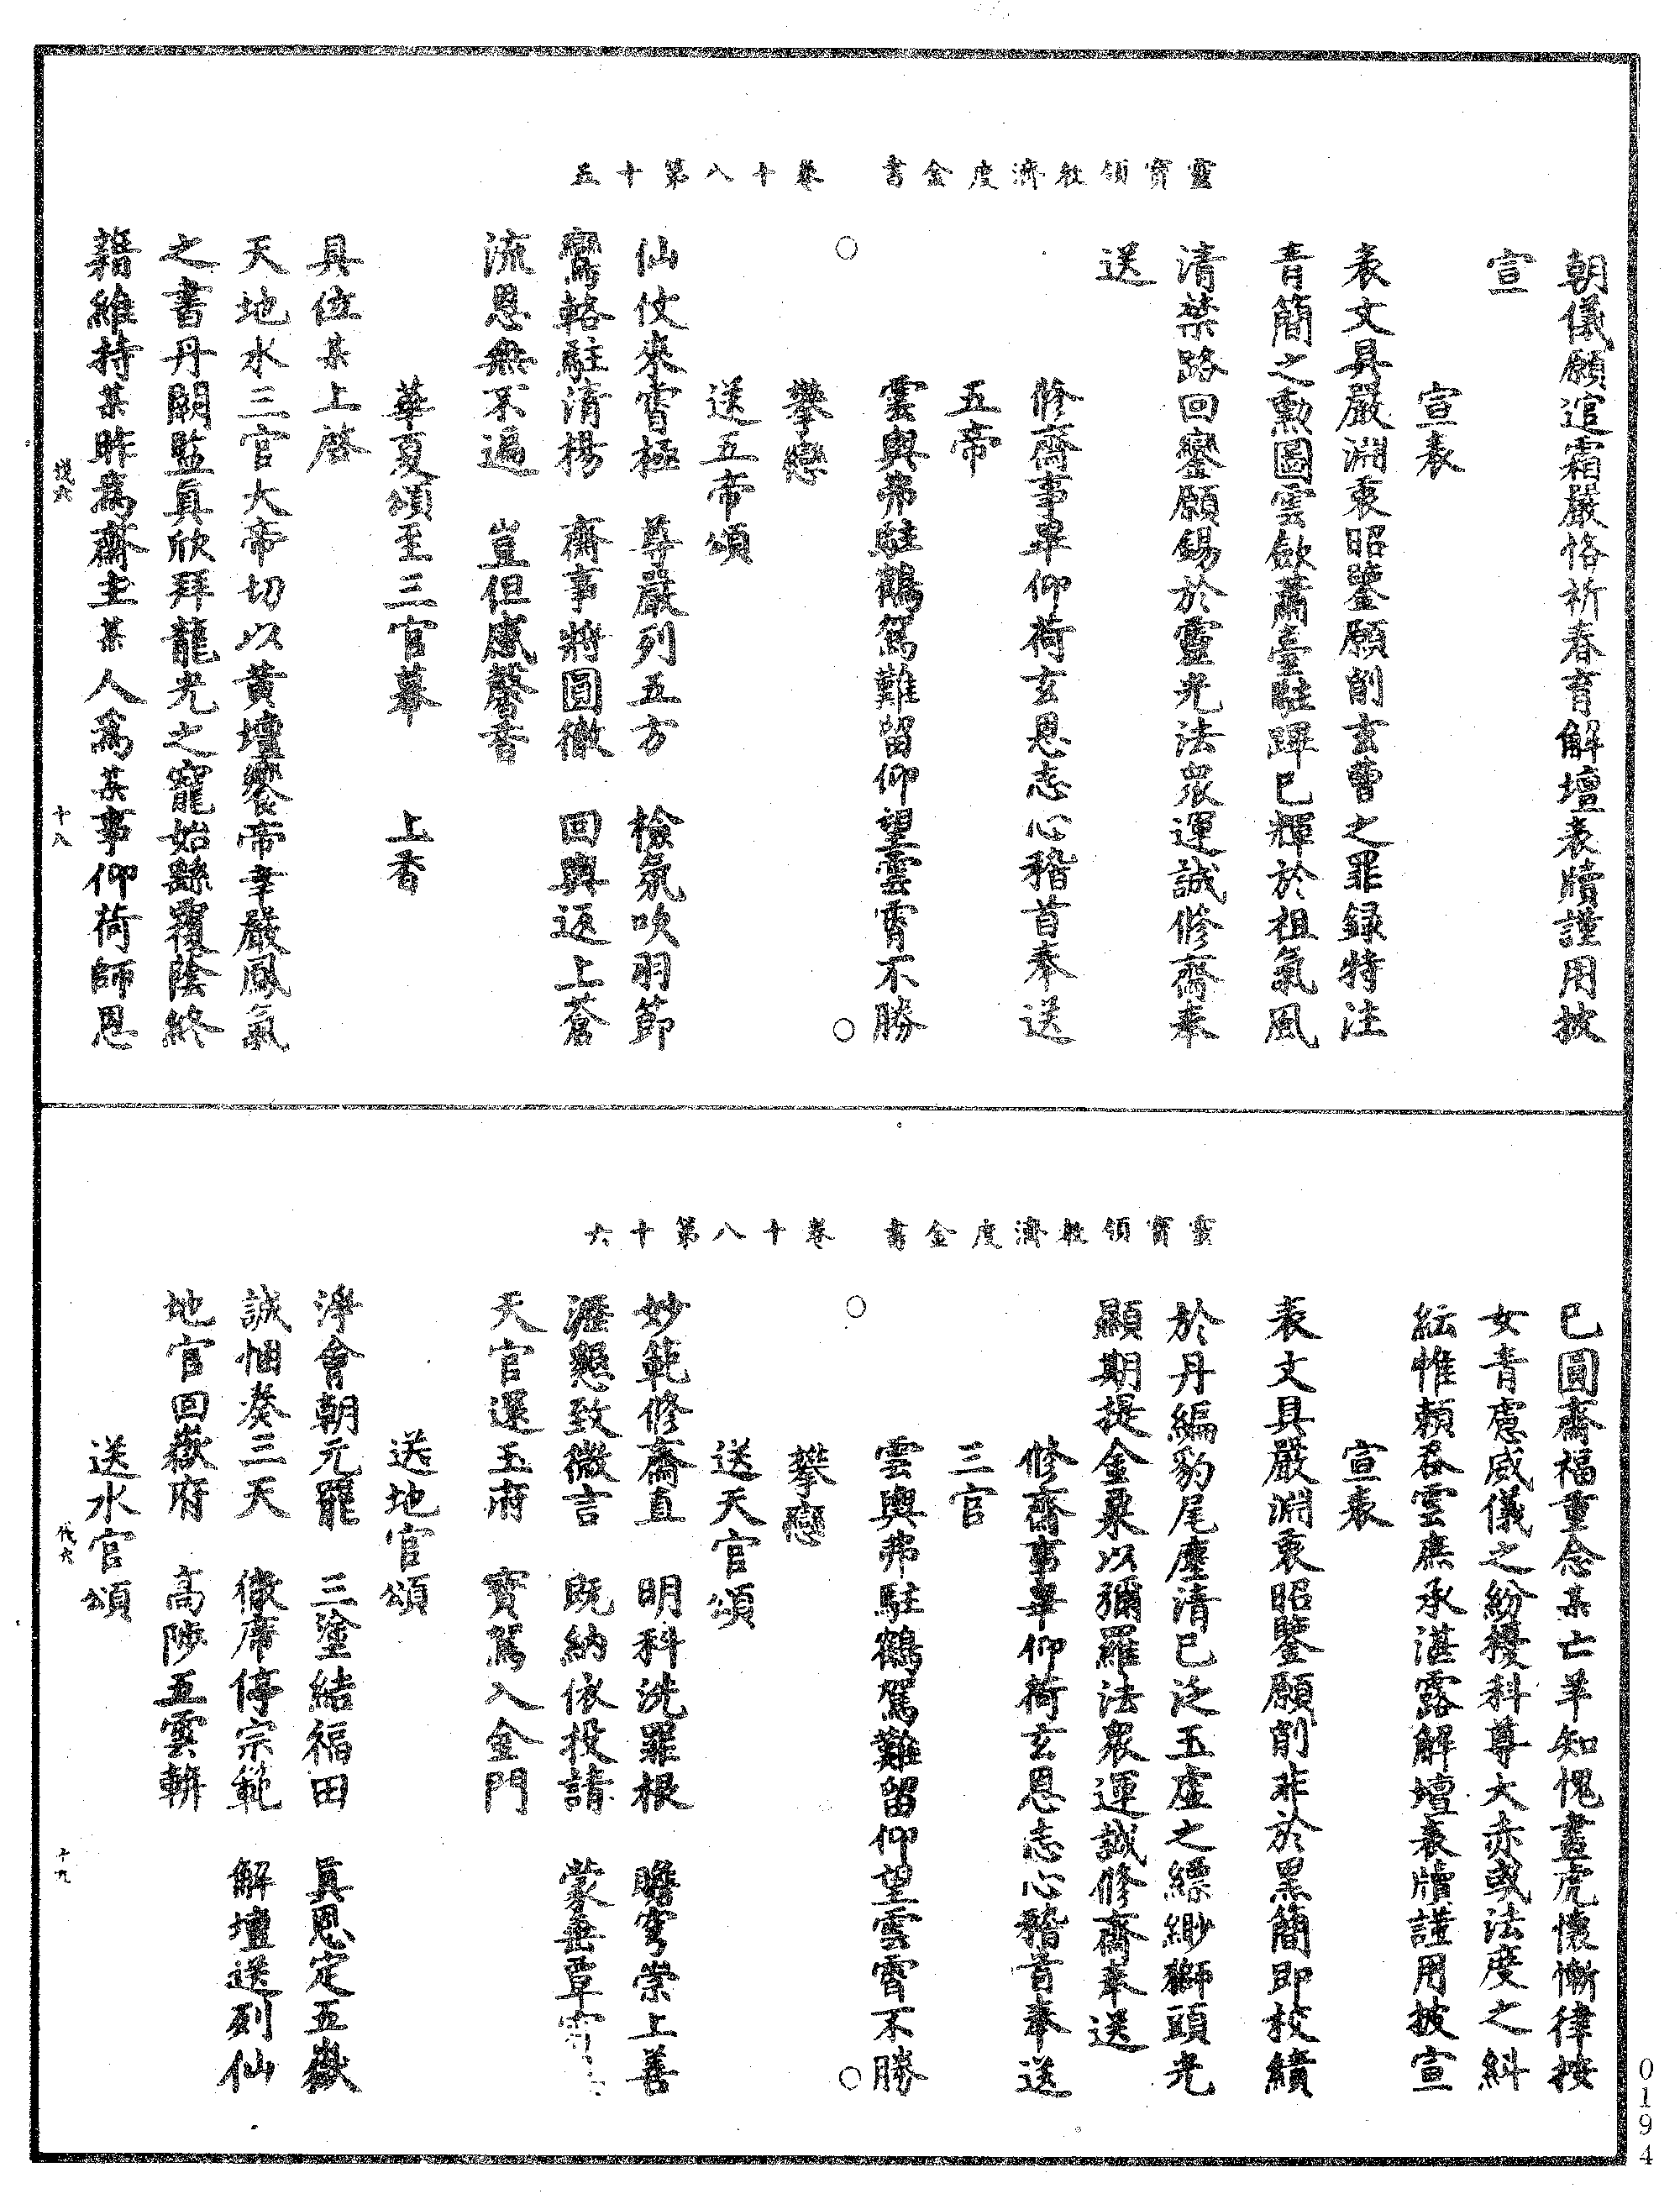 靈寶領教濟度金書　卷十八第十五
朝儀願逭霜嚴恪祈春育解壇表牘謹用披
宣
宣表
表文具嚴淵衷昭鑒願削玄曹之罪録特注
青簡之勲圖雲歛蕭臺駐蹕已輝於祖氣風
清禁路回鑾願錫於靈光法衆運誠修齋奉
送
修齋事畢仰荷玄恩志心稽首奉送
五帝
○　雲輿弗駐鶴駕難留仰望雲霄不勝　○
攀戀
送五帝頌
仙仗來霄極　尊嚴列五方　檢氛吹羽節
鸞輅駐清揚　齋事將圓徹　回輿返上蒼
流恩無不遍　豈但感馨香
華夏頌至三官幕　上香
具位某上啓
天地水三官大帝切以黄壇饗帝幸嚴鳳氣
之書丹闕監眞欣拜龍光之寵始繇覆陰終
籍維持某昨爲齋主某人爲某事仰荷師恩
十八
靈寶領教濟度金書　卷十八第十六
已圓齋福重念某亡羊知愧畫虎懷慚律按
女青慮威儀之紛擾科尊大赤或法度之糾
紜惟頼吞雲庶承湛露解壇表牘謹用披宣
宣表
表文具嚴淵衷昭鑒願削非於黑簡即校績
於丹編豹尾塵清已泛玉虚之縹緲獅頭光
顯期提金粟以彌羅法衆運誠修齋奉送
修齋事畢仰荷玄恩志心稽首奉送
三官
○　雲輿弗駐鶴駕難留仰望雲霄不勝　○
攀戀
送天官頌
妙範修齋直　明科洗罪根　瞻穹崇上善
瀝懇致微言　既納依投請　蒙垂覃
天官還玉府　寶駕入金門
送地官頌
淨會朝元罷　三塗結福田　眞恩定五嶽
誠悃奏三天　徹席停宗範　解壇送列仙
地官回嶽府　高陟五雲軿
送水官頌
十九
0194